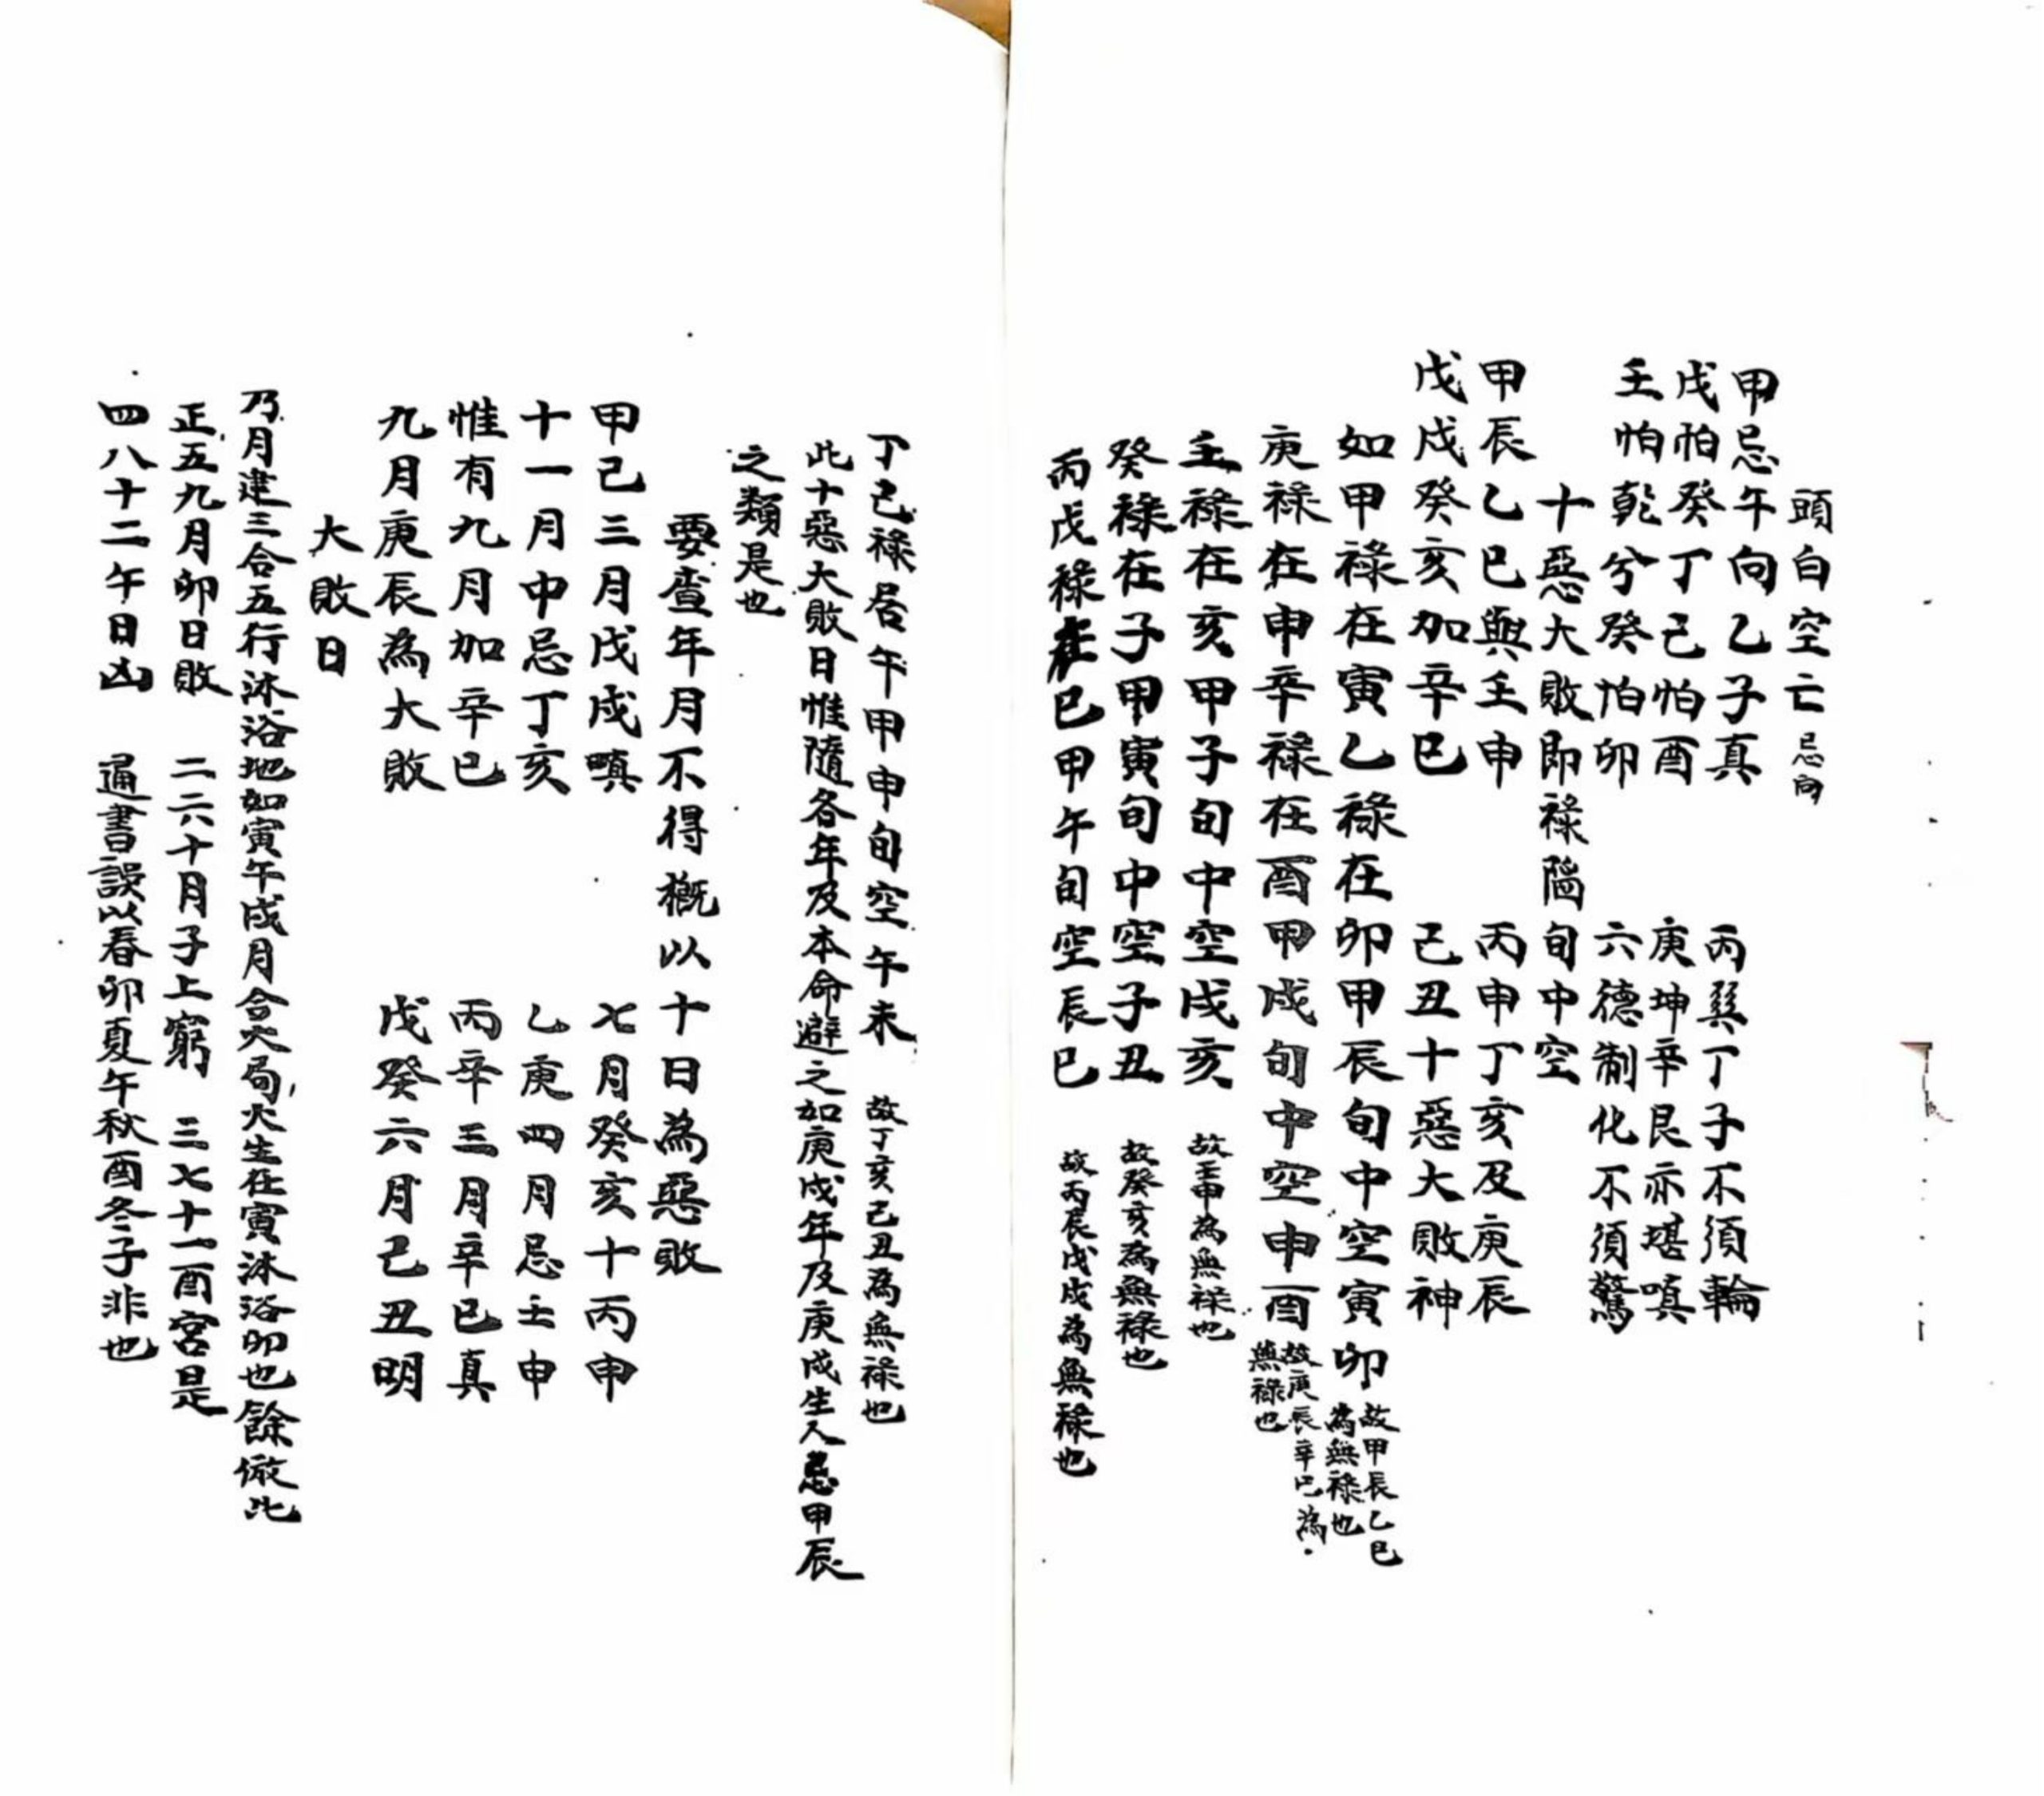 頭白空亡 忌向
甲忌午向乙子真 丙巽丁子不須輪
戊怕癸丁己怕酉 庚坤辛艮亦堪嗔
壬怕乾兮癸怕卯 六德制化不須驚
十惡大敗即祿陷 旬中空
甲辰乙巳與壬申 丙申丁亥及庚辰
戊戌癸亥加辛巳 己丑十惡大敗神
如甲祿在寅乙祿在卯甲辰旬中空寅卯 故甲辰乙巳為無祿也
庚祿在申辛祿在酉甲戌旬中空申酉 故庚辰辛巳為無祿也
壬祿在亥甲子旬中空戌亥 故壬申為無祿也
癸祿在子甲寅旬中空子丑 故癸亥為無祿也
丙戊祿在巳甲午旬空辰巳 故丙辰戊戌為無祿也
丁己祿居午甲申旬空午未 故丁亥己丑為無祿也
此十惡大敗日惟隨各年及本命避之如庚戌年及庚戌生人忌甲辰
之類是也
要查年月不得概以十日為惡敗
甲己三月戊戌嗔 七月癸亥十丙申
十一月中忌丁亥 乙庚四月忌壬申
惟有九月加辛巳 丙辛三月辛巳真
九月庚辰為大敗 戊癸六月己丑明
大敗日
乃月建三合五行沐浴地如寅午戌月合火局火生在寅沐浴卯也餘倣此
正五九月卯日敗 二六十月子上窮 三七十一酉宮是
四八十二午日凶 通書誤以春卯夏午秋酉冬子非也